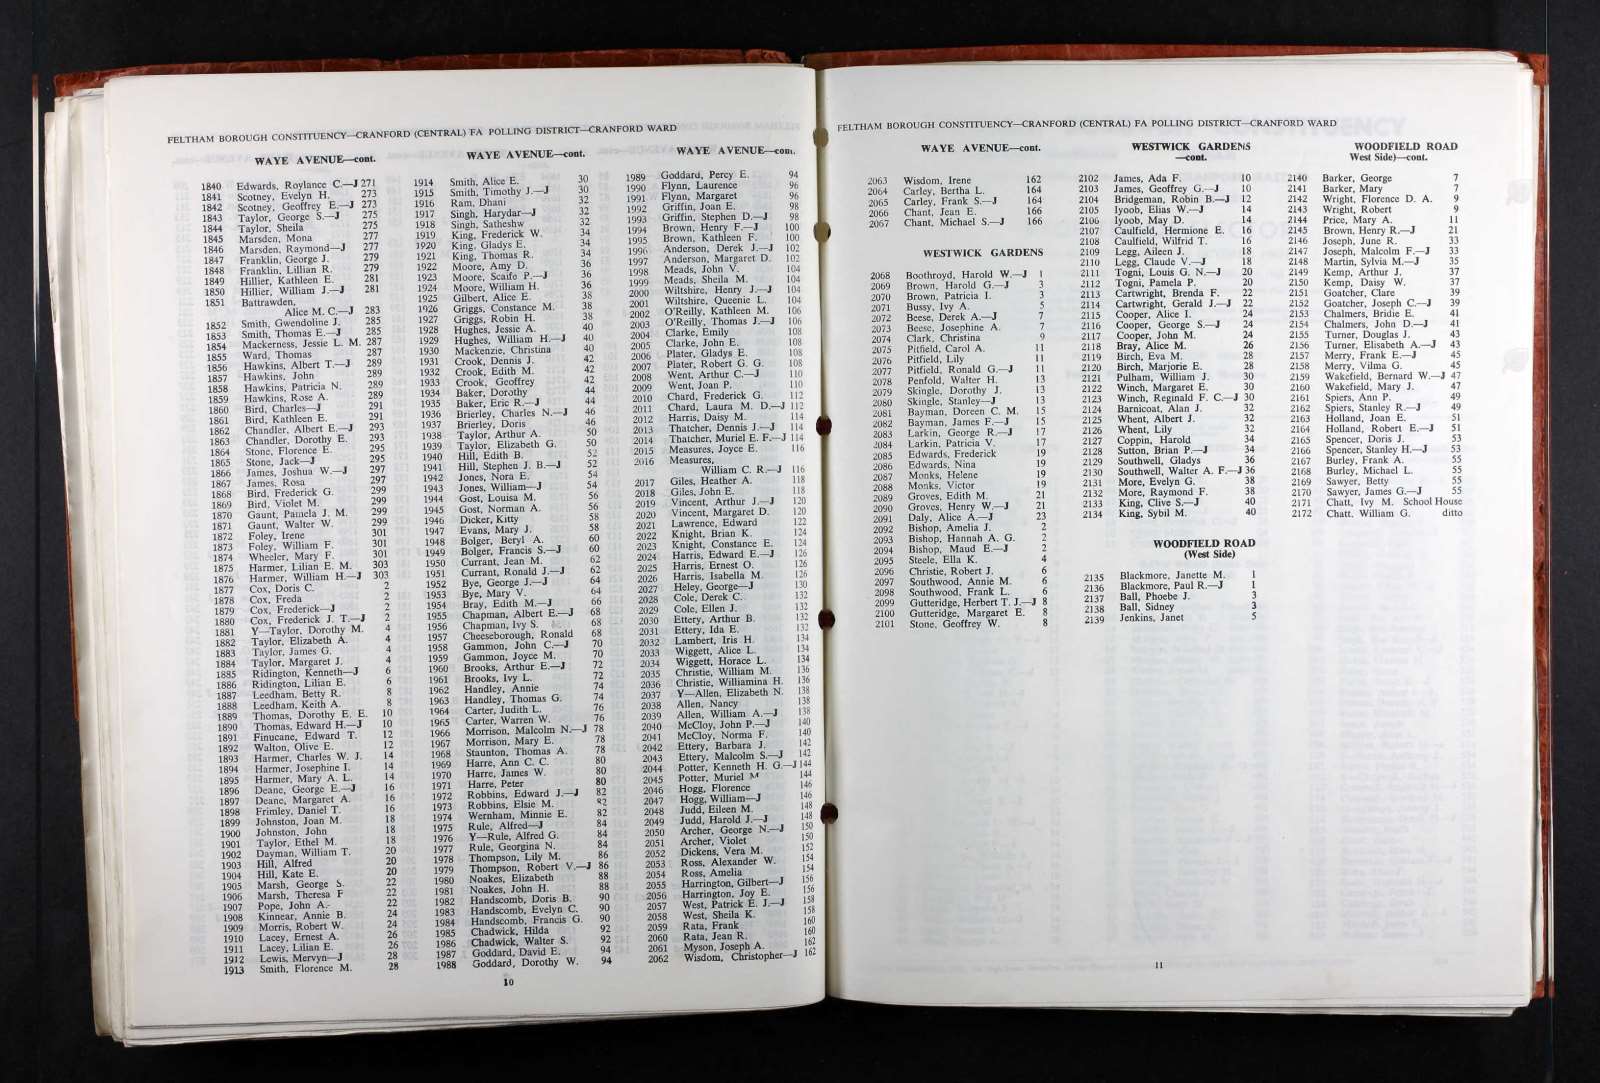 FELTHAM BOROUGH CONSTITUENCY—CRANFORD (CENTRAL) FA POLLING DISTRICT—CRANFORD WARD
WAYE AVENUE—cont.
1840 Edwards, Roylance C.—J 271
1841 Scotney, Evelyn H. 273
1842 Scotney, Geoffrey E.—J 273
1843 Taylor, George S.—J 275
1844 Taylor, Sheila 275
1845 Marsden, Mona 277
1846 Marsden, Raymond—J 277
1847 Franklin, George J. 279
1848 Franklin, Lillian R. 279
1849 Hillier, Kathleen E. 281
1850 Hillier, William J.—J 281
1851 Battrawden,
Alice M. C.—J 283
1852 Smith, Gwendoline J. 285
1853 Smith, Thomas E.—J 285
1854 Mackerness, Jessie L. M. 287
1855 Ward, Thomas 287
1856 Hawkins, Albert T.—J 289
1857 Hawkins, John 289
1858 Hawkins, Patricia N. 289
1859 Hawkins, Rose A. 289
1860 Bird, Charles—J 291
1861 Bird, Kathleen E. 291
1862 Chandler, Albert E.—J 293
1863 Chandler, Dorothy E. 293
1864 Stone, Florence E. 295
1865 Stone, Jack—J 295
1866 James, Joshua W.—J 297
1867 James, Rosa 297
1868 Bird, Frederick G. 299
1869 Bird, Violet M. 299
1870 Gaunt, Pamela J. M. 299
1871 Gaunt, Walter W. 299
1872 Foley, Irene 301
1873 Foley, William F. 301
1874 Wheeler, Mary F. 301
1875 Harmer, Lilian E. M. 303
1876 Harmer, William H.—J 303
1877 Cox, Doris C. 2
1878 Cox, Freda 2
1879 Cox, Frederick—J 2
1880 Cox, Frederick J. T.—J 2
1881 Y—Taylor, Dorothy M. 4
1882 Taylor, Elizabeth A. 4
1883 Taylor, James G. 4
1884 Taylor, Margaret J. 4
1885 Ridington, Kenneth—J 6
1886 Ridington, Lilian E. 6
1887 Leedham, Betty R. 8
1888 Leedham, Keith A. 8
1889 Thomas, Dorothy E. E. 10
1890 Thomas, Edward H.—J 10
1891 Finucane, Edward T. 12
1892 Walton, Olive E. 12
1893 Harmer, Charles W. J. 14
1894 Harmer, Josephine I. 14
1895 Harmer, Mary A. L. 14
1896 Deane, George E.—J 16
1897 Deane, Margaret A. 16
1898 Frimley, Daniel T. 16
1899 Johnston, Joan M. 18
1900 Johnston, John 18
1901 Taylor, Ethel M. 18
1902 Dayman, William T. 20
1903 Hill, Alfred 20
1904 Hill, Kate E. 20
1905 Marsh, George S. 22
1906 Marsh, Theresa F 22
1907 Pope, John A. 22
1908 Kinnear, Annie B. 24
1909 Morris, Robert W. 24
1910 Lacey, Ernest A. 26
1911 Lacey, Lilian E. 26
1912 Lewis, Mervyn—J 28
1913 Smith, Florence M. 28
WAYE AVENUE—cont.
1914 Smith, Alice E. 30
1915 Smith, Timothy J.—J 30
1916 Ram, Dhani 32
1917 Singh, Harydar—J 32
1918 Singh, Satheshw 32
1919 King, Frederick W. 34
1920 King, Gladys E. 34
1921 King, Thomas R. 34
1922 Moore, Amy D. 36
1923 Moore, Scaife P.—J 36
1924 Moore, William H. 36
1925 Gilbert, Alice E. 38
1926 Griggs, Constance M. 38
1927 Griggs, Robin H. 38
1928 Hughes, Jessie A. 40
1929 Hughes, William H.—J 40
1930 Mackenzie, Christina 40
1931 Crook, Dennis J. 42
1932 Crook, Edith M. 42
1933 Crook, Geoffrey 42
1934 Baker, Dorothy 44
1935 Baker, Eric R.—J 44
1936 Brierley, Charles N.—J 46
1937 Brierley, Doris 46
1938 Taylor, Arthur A. 50
1939 Taylor, Elizabeth G. 50
1940 Hill, Edith B. 52
1941 Hill, Stephen J. B.—J 52
1942 Jones, Nora E. 54
1943 Jones, William—J 54
1944 Gost, Louisa M. 56
1945 Gost, Norman A. 56
1946 Dicker, Kitty 58
1947 Evans, Mary J. 58
1948 Bolger, Beryl A. 60
1949 Bolger, Francis S.—J 60
1950 Currant, Jean M. 62
1951 Currant, Ronald J.—J 62
1952 Bye, George J.—J 64
1953 Bye, Mary V. 64
1954 Bray, Edith M.—J 66
1955 Chapman, Albert E.—J 68
1956 Chapman, Ivy S. 68
1957 Cheeseborough, Ronald 68
1958 Gammon, John C.—J 70
1959 Gammon, Joyce M. 70
1960 Brooks, Arthur E.—J 72
1961 Brooks, Ivy L. 72
1962 Handley, Annie 74
1963 Handley, Thomas G. 74
1964 Carter, Judith L. 76
1965 Carter, Warren W. 76
1966 Morrison, Malcolm N.—J 78
1967 Morrison, Mary E. 78
1968 Staunton, Thomas A. 78
1969 Harre, Ann C. C. 80
1970 Harre, James W. 80
1971 Harre, Peter 80
1972 Robbins, Edward J.—J 82
1973 Robbins, Elsie M. 82
1974 Wernham, Minnie E. 82
1975 Rule, Alfred—J 84
1976 Y—Rule, Alfred G. 84
1977 Rule, Georgina N. 84
1978 Thompson, Lily M. 86
1979 Thompson, Robert V.—J 86
1980 Noakes, Elizabeth 88
1981 Noakes, John H. 88
1982 Handscomb, Doris B. 90
1983 Handscomb, Evelyn C. 90
1984 Handscomb, Francis G. 90
1985 Chadwick, Hilda 92
1986 Chadwick, Walter S. 92
1987 Goddard, David E. 94
1988 Goddard, Dorothy W. 94
WAYE AVENUE—cont.
1989 Goddard, Percy E. 94
1990 Flynn, Laurence 96
1991 Flynn, Margaret 96
1992 Griffin, Joan E. 98
1993 Griffin, Stephen D.—J 98
1994 Brown, Henry F.—J 100
1995 Brown, Kathleen F. 100
1996 Anderson, Derek J.—J 102
1997 Anderson, Margaret D. 102
1998 Meads, John V. 104
1999 Meads, Sheila M. 104
2000 Wiltshire, Henry J.—J 104
2001 Wiltshire, Queenie L. 104
2002 O'Reilly, Kathleen M. 106
2003 O'Reilly, Thomas J.—J 106
2004 Clarke, Emily 108
2005 Clarke, John E. 108
2006 Plater, Gladys E. 108
2007 Plater, Robert G. G. 108
2008 Went, Arthur C.—J 110
2009 Went, Joan P. 110
2010 Chard, Frederick G. 112
2011 Chard, Laura M. D.—J 112
2012 Harris, Daisy M. 114
2013 Thatcher, Dennis J.—J 114
2014 Thatcher, Muriel E. F.—J 114
2015 Measures, Joyce E. 116
2016 Measures,
William C. R.—J 116
2017 Giles, Heather A. 118
2018 Giles, John E. 118
2019 Vincent, Arthur J.—J 120
2020 Vincent, Margaret D. 120
2021 Lawrence, Edward 122
2022 Knight, Brian K. 124
2023 Knight, Constance E. 124
2024 Harris, Edward E.—J 126
2025 Harris, Ernest O. 126
2026 Harris, Isabella M. 126
2027 Heley, George—J 130
2028 Cole, Derek C. 132
2029 Cole, Ellen J. 132
2030 Ettery, Arthur B. 132
2031 Ettery, Ida E. 132
2032 Lambert, Iris H. 134
2033 Wiggett, Alice L. 134
2034 Wiggett, Horace L. 134
2035 Christie, William M. 136
2036 Christie, Williamina H. 136
2037 Y—Allen, Elizabeth N. 138
2038 Allen, Nancy 138
2039 Allen, William A.—J 138
2040 McCloy, John P.—J 140
2041 McCloy, Norma F. 140
2042 Ettery, Barbara J. 142
2043 Ettery, Malcolm S.—J 142
2044 Potter, Kenneth H. G.—J 144
2045 Potter, Muriel M 144
2046 Hogg, Florence 146
2047 Hogg, William—J 146
2048 Judd, Eileen M. 148
2049 Judd, Harold J.—J 148
2050 Archer, George N.—J 150
2051 Archer, Violet 150
2052 Dickens, Vera M. 152
2053 Ross, Alexander W. 154
2054 Ross, Amelia 154
2055 Harrington, Gilbert—J 156
2056 Harrington, Joy E. 156
2057 West, Patrick E. J.—J 158
2058 West, Sheila K. 158
2059 Rata, Frank 160
2060 Rata, Jean R. 160
2061 Myson, Joseph A. 162
2062 Wisdom, Christopher—J 162
10
FELTHAM BOROUGH CONSTITUENCY—CRANFORD (CENTRAL) FA POLLING DISTRICT—CRANFORD WARD
WAYE AVENUE—cont.
2063 Wisdom, Irene 162
2064 Carley, Bertha L. 164
2065 Carley, Frank S.—J 164
2066 Chant, Jean E. 166
2067 Chant, Michael S.—J 166
WESTWICK GARDENS
2068 Boothroyd, Harold W.—J 1
2069 Brown, Harold G.—J 3
2070 Brown, Patricia I. 3
2071 Bussy, Ivy A. 5
2072 Beese, Derek A.—J 7
2073 Beese, Josephine A. 7
2074 Clark, Christina 9
2075 Pitfield, Carol A. 11
2076 Pitfield, Lily 11
2077 Pitfield, Ronald G.—J 11
2078 Penfold, Walter H. 13
2079 Skingle, Dorothy J. 13
2080 Skingle, Stanley—J 13
2081 Bayman, Doreen C. M. 15
2082 Bayman, James F.—J 15
2083 Larkin, George R.—J 17
2084 Larkin, Patricia V. 17
2085 Edwards, Frederick 19
2086 Edwards, Nina 19
2087 Monks, Helene 19
2088 Monks, Victor 19
2089 Groves, Edith M. 21
2090 Groves, Henry W.—J 21
2091 Daly, Alice A.—J 23
2092 Bishop, Amelia J. 2
2093 Bishop, Hannah A. G. 2
2094 Bishop, Maud E.—J 2
2095 Steele, Ella K. 4
2096 Christie, Robert J. 6
2097 Southwood, Annie M. 6
2098 Southwood, Frank L. 6
2099 Gutteridge, Herbert T. J.—J 8
2100 Gutteridge, Margaret E. 8
2101 Stone, Geoffrey W. 8
WESTWICK GARDENS
—cont.
2102 James, Ada F. 10
2103 James, Geoffrey G.—J 10
2104 Bridgeman, Robin B.—J 12
2105 Iyoob, Elias W.—J 14
2106 Iyoob, May D. 14
2107 Caulfield, Hermione E. 16
2108 Caulfield, Wilfrid T. 16
2109 Legg, Aileen J. 18
2110 Legg, Claude V.—J 18
2111 Togni, Louis G. N.—J 20
2112 Togni, Pamela P. 20
2113 Cartwright, Brenda F. 22
2114 Cartwright, Gerald J.—J 22
2115 Cooper, Alice I. 24
2116 Cooper, George S.—J 24
2117 Cooper, John M. 24
2118 Bray, Alice M. 26
2119 Birch, Eva M. 28
2120 Birch, Marjorie E. 28
2121 Pulham, William J. 30
2122 Winch, Margaret E. 30
2123 Winch, Reginald F. C.—J 30
2124 Barnicoat, Alan J. 32
2125 Whent, Albert J. 32
2126 Whent, Lily 32
2127 Coppin, Harold 34
2128 Sutton, Brian P.—J 34
2129 Southwell, Gladys 36
2130 Southwell, Walter A. F.—J 36
2131 More, Evelyn G. 38
2132 More, Raymond F. 38
2133 King, Clive S.—J 40
2134 King, Sybil M. 40
WOODFIELD ROAD
(West Side)
2135 Blackmore, Janette M. 1
2136 Blackmore, Paul R.—J 1
2137 Ball, Phoebe J. 3
2138 Ball, Sidney 3
2139 Jenkins, Janet 5
WOODFIELD ROAD
West Side)—cont.
2140 Barker, George 7
2141 Barker, Mary 7
2142 Wright, Florence D. A. 9
2143 Wright, Robert 9
2144 Price, Mary A. 11
2145 Brown, Henry R.—J 21
2146 Joseph, June R. 33
2147 Joseph, Malcolm F.—J 33
2148 Martin, Sylvia M.—J 35
2149 Kemp, Arthur J. 37
2150 Kemp, Daisy W. 37
2151 Goatcher, Clare 39
2152 Goatcher, Joseph C.—J 39
2153 Chalmers, Bridie E. 41
2154 Chalmers, John D.—J 41
2155 Turner, Douglas J. 43
2156 Turner, Elisabeth A.—J 43
2157 Merry, Frank E.—J 45
2158 Merry, Vilma G. 45
2159 Wakefield, Bernard W.—J 47
2160 Wakefield, Mary J. 47
2161 Spiers, Ann P. 49
2162 Spiers, Stanley R.—J 49
2163 Holland, Joan E. 51
2164 Holland, Robert E.—J 51
2165 Spencer, Doris J. 53
2166 Spencer, Stanley H.—J 53
2167 Burley, Frank A. 55
2168 Burley, Michael L. 55
2169 Sawyer, Betty 55
2170 Sawyer, James G.—J 55
2171 Chatt, Ivy M. School House
2172 Chatt, William G. ditto
11